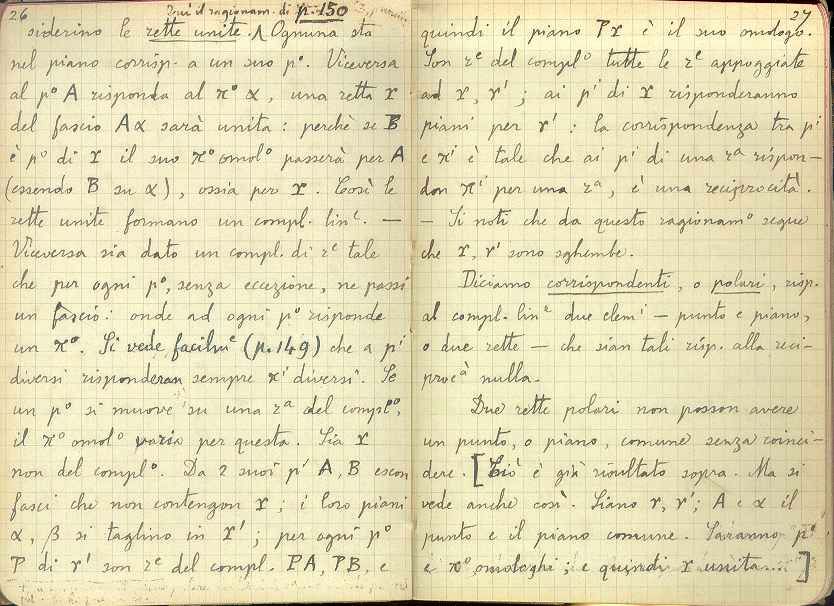 26
Trui il ragionam. di p. 150
siderino le rette unite. ∧ Ognuna sta
nel piano corrisp. a un suo pº. Viceversa
al pº A risponda al πº α, una retta r
del fascio Aα sarà unita: perchè se B
è pº di r il suo πº omolº passerà per A
(essendo B su α), ossia per r. Così le
rette unite formano un compl. linᵉ. —
Viceversa sia dato un compl. di rᵉ tale
che per ogni pº, senza eccezione, ne passi
un fascio: onde ad ogni pº risponde
un πº. Si vede facilmᵉ (p. 149) che a pⁱ
diversi risponderan sempre πⁱ diversi. Se
un pº si muove su una rᵃ del complº,
il πº omolº varia per questa. Sia r
non del complº. Da 2 suoi pⁱ A, B escon
fasci che non contengon r; i loro piani
α, β si taglino in r'; per ogni pº
P di r' son rᵉ del compl. PA, PB, e
27
quindi il piano Pr è il suo omologo.
Son rᵉ del complº tutte le rᵉ appoggiate
ad r, r'; ai pⁱ di r risponderanno
piani per r': la corrispondenza tra pⁱ
e πⁱ è tale che ai pⁱ di una rᵃ rispon-
don πⁱ per una rᵃ, è una reciprocità.
— Si noti che da questo ragionamº segue
che r, r' sono sghembe.
Diciamo corrispondenti, o polari, risp.
al compl. linᵉ due elemⁱ — punto e piano,
o due rette — che sian tali risp. alla reci-
procᵃ nulla.
Due rette polari non posson avere
un punto, o piano, comune senza coinci-
dere. [Ciò è già risultato sopra. Ma si
vede anche così. Siano r, r'; A e α il
punto e il piano comune. Saranno pº
e πº omologhi; e quindi r unita...]